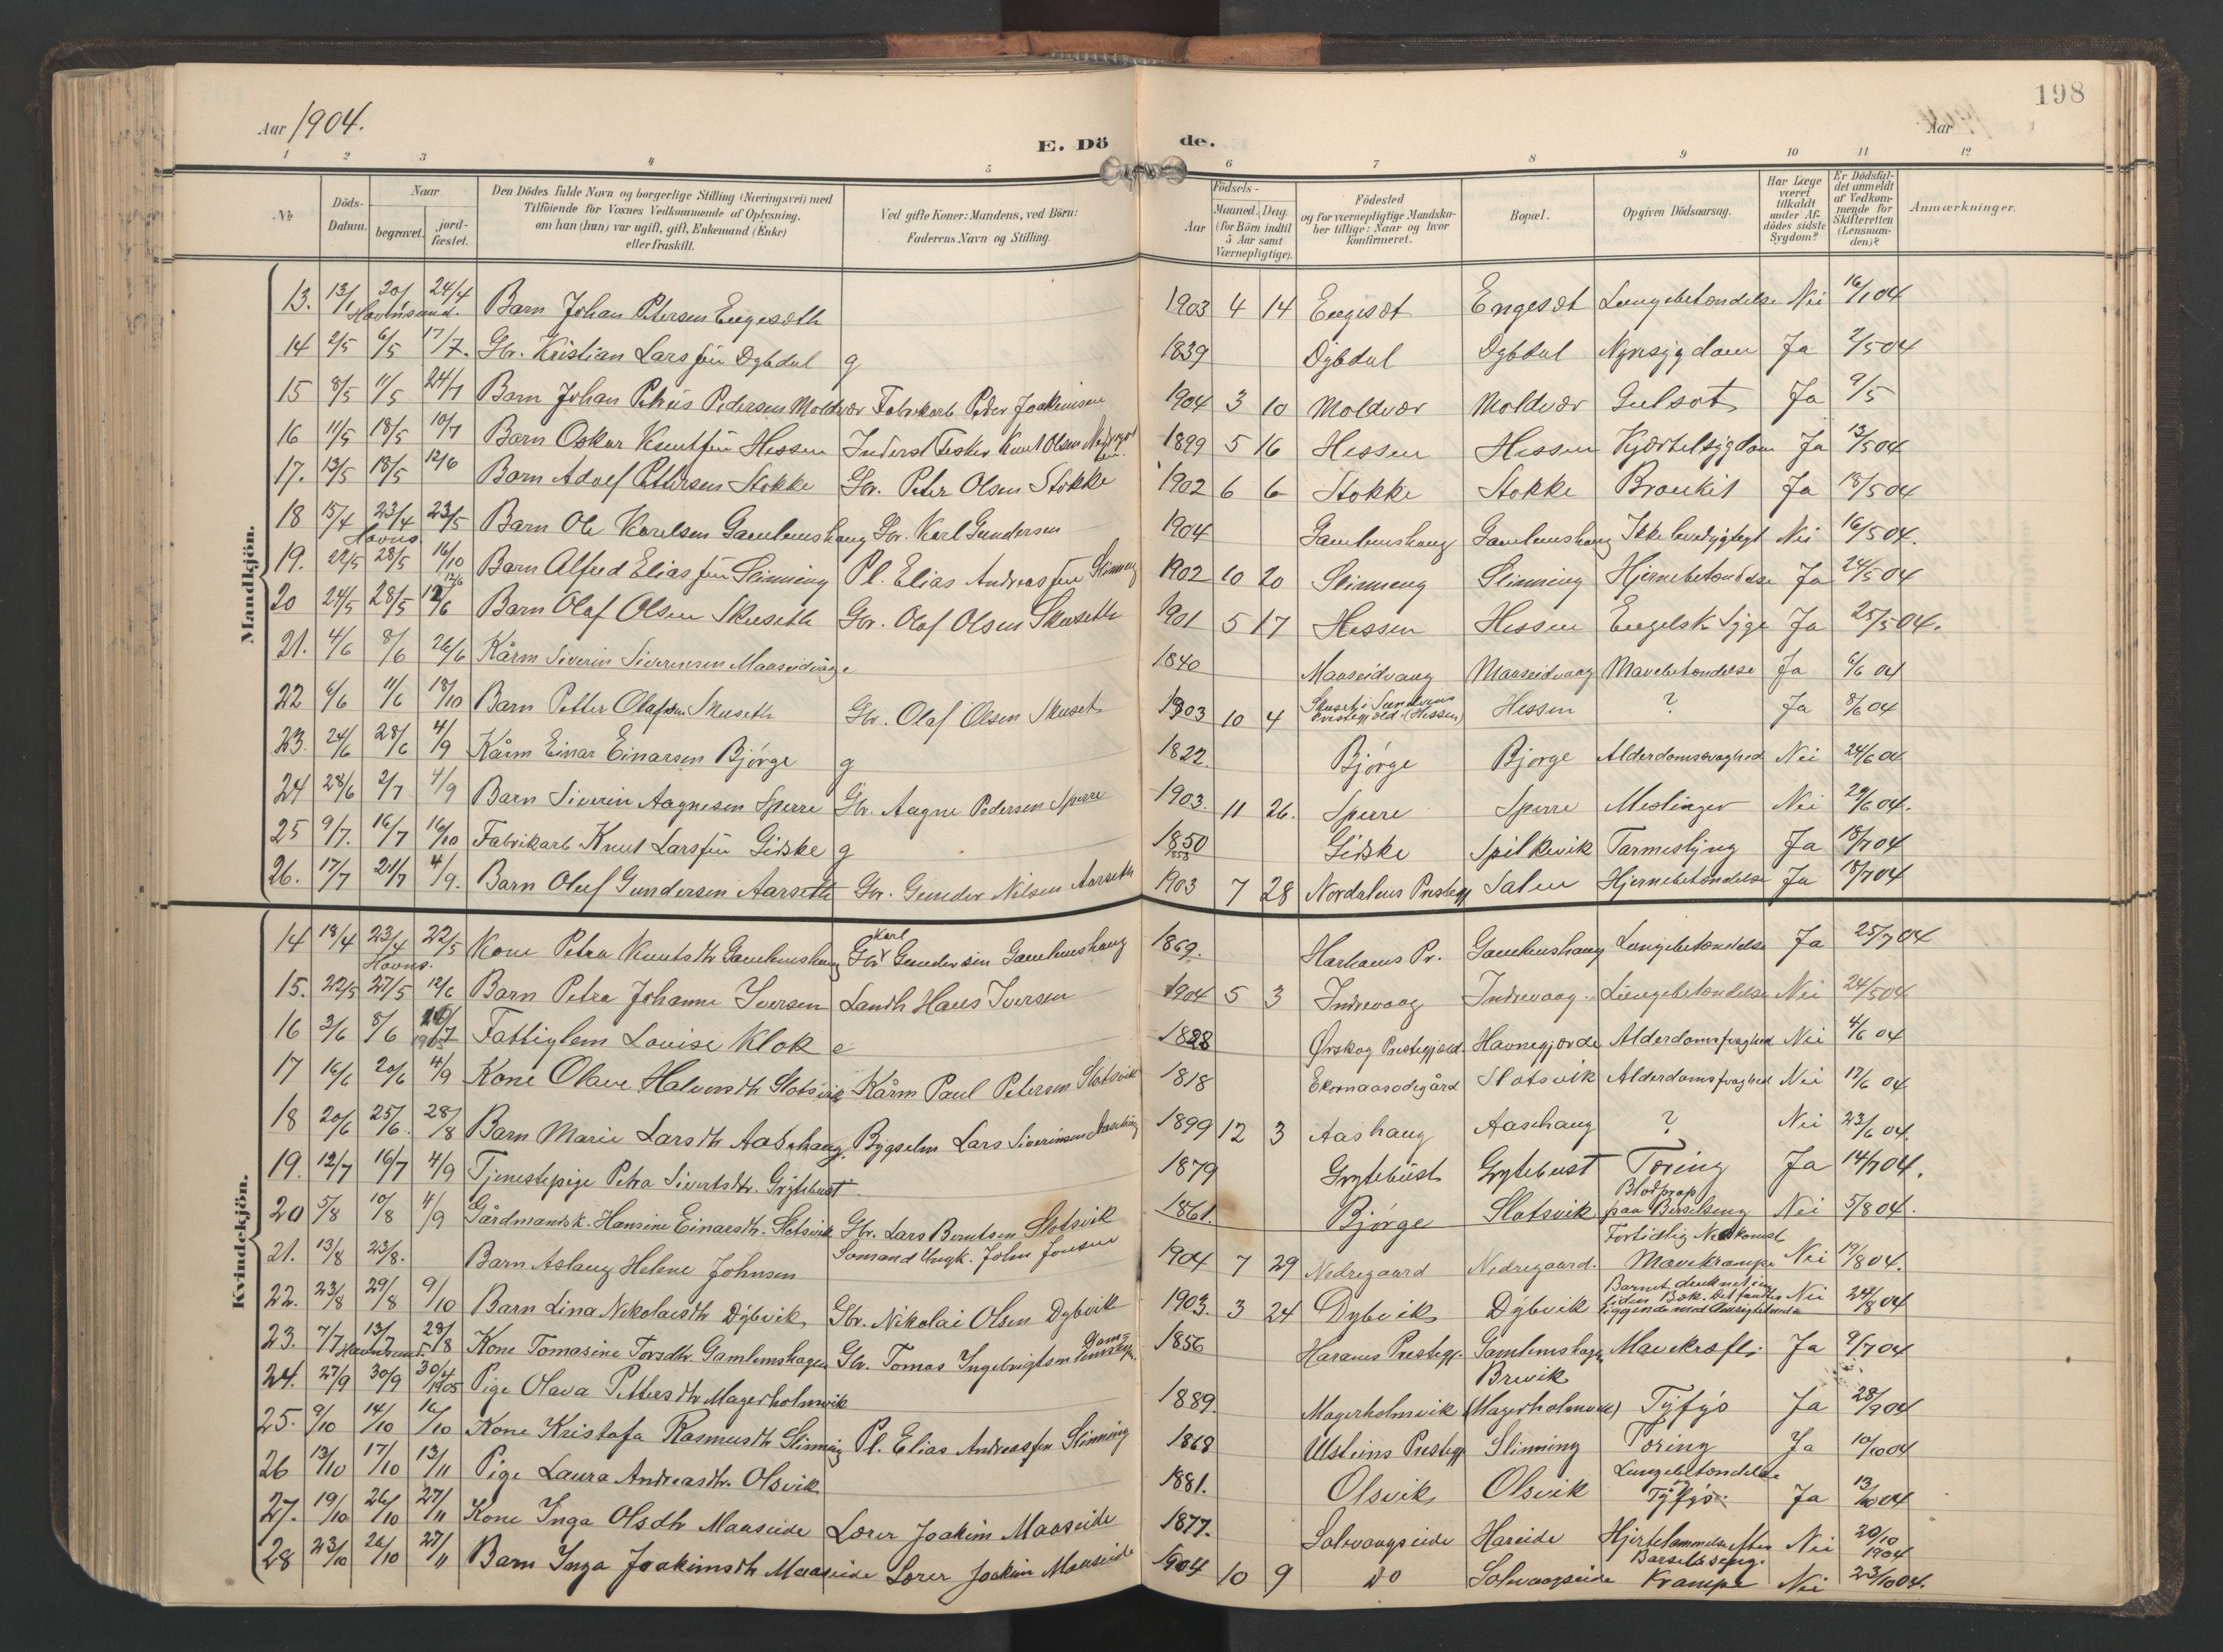 198
Aar 1904.
E. Dö de.
Aar
1 2 3 4 5 6 7 8 9 10 11 12
No
Döds-Datum.
Naar
begravet.
jord-fæstet.
Den Dödes fulde Navn og borgerlige Stilling (Næringsvei) med
Tilföiende for Voxnes Vedkommende af Oplysning,
om han (hun) var ugift, gift, Enkemand (Enke)
eller fraskilt.
Ved gifte Koner: Mandens, ved Börn:
Faderens Navn og Stilling.
Födsels-
Aar
Maaned. Dag.
(for Börn indtil
5 Aar samt
Værnepligtige).
Födested
og for værnepligtige Mandska-
ber tillige: Naar og hvor
konfirmeret.
Bopæl.
Opgiven Dödsaarsag.
Har Læge
været
tilkaldt
under Af-
dödes sidste
Sygdom?
Er Dödsfal-
det anmeldt
af Vedkom-
mende for
Skifteretten
(Lensman-
den)?
Anmærkninger.
Mandkjön.
13. 13/1 20/1 24/4 Barn Johan Petersen Engesæth 1903 4 14 Engesæt Engesæt Lungebetændelse Nei 16/1 04
14 2/5 6/5 17/7. Gbr. Kristian Larssøn Dybdal g 1839 Dybdal Dybdal Nyresygdom Ja 2/5 04
15 8/5 11/5 24/7 Barn Johan Petrus Pedersen Moldvær Fabrikarb Peder Joakimsen 1904 3 10 Moldvær Moldvær Gulsot Ja 9/5
16 11/5 18/5 10/7 Barn Oskar Knutsøn Hessen Inderst Fisker Knut Olsen 1899 5 16 Hessen Hessen Kjertelsygdom Ja 13/5 04
17. 13/5 18/5 12/6 Barn Adolf Pettersen Stokke Gbr. Peter Olsen Stokke 1902 6 6 Stokke Stokke Bronkit Ja 18/5 04
18 15/4 23/4 23/5 Barn Ole Karelsen Gamlemshaug Gbr. Karl Gundersen 1904 Gamlemshaug Gamlemshaug Ikke levedygtigt Nei 16/5 04.
Havns.
19. 22/5 28/5 16/10 Barn Alfred Eliassøn Slinning Pl. Elias Andreassøn Slinning 1902 10 20 Slinning Slinning Hjernebetændelse Ja 24/5 04
20 24/5 28/5 12/6 Barn Olaf Olsen Skuseth Gbr. Olaf Olsen Skuseth 1901 5 17 Hessen Hessen Engelsk Syge Ja 25/5 04.
21. 4/6 8/6 26/6 Kårm Siverin Siverinsen Maaseidvåg e 1840 Maaseidvaag Maaseidvaag Mavebetændelse Ja 6/6 04
22 6/6 11/6 18/10 Barn Petter Olafsen Skuseth Gbr. Olaf Olsen Skuset 1903 10 4 Skuset i Søndvens Prestegjeld (Hessen) Hessen ? Ja 8/6 04
23. 24/6 28/6 4/9 Kårm Einar Einarsen Bjørge g 1822. Bjørge Bjørge Alderdomssvaghed Nei 24/6 04
24 28/6 2/7 4/9 Barn Siverin Aagnesen Sperre Gbr. Aagne Pedersen Sperre 1903. 11 26. Sperre Sperre Meslinger Nei 29/6 04.
25 9/7. 16/7 16/10 Fabrikarb Knut Larssøn Giske g 1850 Giske Spilkevik Tarmeslyng Ja 18/7 04
26. 17/7 21/7 4/9. Barn Oluf Gundersen Aarseth Gbr. Gunder Nilsen Aarseth 1903 7 28 Nordalens Prestegj Satn Hjernebetændelse Ja 18/7 04
Kvindekjön.
14 18/4 23/4 22/5 Kone Petra Knutsdtr Gamlemshaug Gbr Karl Gundersen Gamlemshaug 1869. Harhams Pr. Gamlemshaug Lungebetændelse Ja 25/7 04
Havns.
15. 22/5 27/5 12/6 Barn Petra Johanne Iversen Landh Hans Iversen 1904 5 3 Indrevaag Indrevaag. Lungebetændelse Nei 24/5 04
16 3/6 8/6 1905 Fattiglem Louise Klok e 1828 Ørskog Prestegjeld. Havnegjerde Alderdomssvaghed Nei 4/6 04
17 16/6 20/6 4/9 Kone Olave Halvorsdtr Slotsvik Kårm Paul Petersen Slotsvik 1818 Ekornaasødegård Slotsvik Alderdomssvaghed Nei 17/6 04
18 20/6 25/6. 28/8 Barn Marie Larsdtr Aasehaug. Bygselm Lars Siverinsen Aasehaug 1899 12 3 Aashaug Aasehaug ? Nei 23/6 04.
19. 12/7 16/7 4/9 Tjenestepige Petra Sivertsdtr. Grytebust 1879 Grytebust Grytebust Tæring Ja 14/7 04.
20 5/8 10/8 4/9 Gårdmandsk. Hansine Einarsdtr. Slotsvik Gbr. Lars Berntsen Slotsvik 1861. Bjørge Slotsvik Blodprop paa Barselseng Nei 5/8 04.
21. 13/8 23/8. Barn Aslaug Helene Johnsen Sømand Ungk. John Jonsen 1904 7 29 Nedregaard Nedregaard. Fortidlig Nedkomst Mavekrampe Nei 19/8 04.
22. 23/8 29/8 9/10 Barn Lina Nikolaisdtr Dybvik Gbr. Nikolai Olsen Dybvik 1903. 3 24 Dybvik Dybvik Barnet druknet i en liden Bæk. Det fandtes liggende med Ansigtet Nei 24/8 04
23. 7/7 13/7 28/8 Kone Tomasine Torsdtr. Gamlemshagen Gbr. Tomas Ingebrigtsen Gamlemshagen 1856 Harams Prestegj. Gamlemshagen Mavekræft. Ja 9/7 04
24. 27/9 30/9 30/4 1905 Pige Olava Pettersdtr Magerholmvik 1889. Magerholmvik Brevik (Magerholmvik) Tyfys Ja 28/9 04
25. 9/10 14/10 16/10 Kone Kristofa Rasmusdtr Slinning Pl. Elias Andreassøn Slinning 1868 Ulsteins Prestegj Slinning Tæring Ja 10/10 04
26 13/10 17/10 13/11 Pige Laura Andreasdtr. Olsvik 1881. Olsvik Olsvik Lungebetændelse og Tyfys. Ja 13/10 04
27. 19/10 26/10 27/11 Kone Inga Olsdtr Maaseide Lærer Joakim Maaseide 1877. Solvaagseide Hareide Hjertelammelse efter Barselseng. Nei 20/10 1904
28 23/10 26/10 27/11 Barn Inga Joakimsdtr Maaseide Lærer Joakim Maaseide 1904 10 9 do Solvaagseide Krampe Nei 23/10 04.